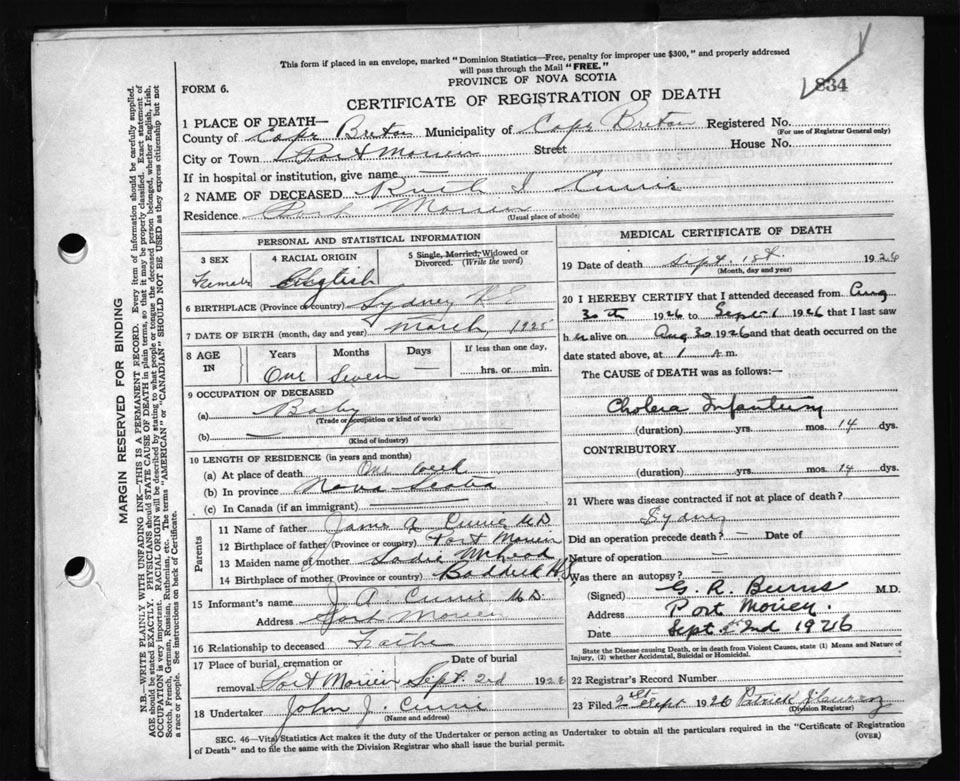 This form if placed in an envelope, marked "Dominion Statistics—Free, penalty for improper use $300," and properly addressed
will pass through the Mail "FREE."
PROVINCE OF NOVA SCOTIA
834
FORM 6.
CERTIFICATE OF REGISTRATION OF DEATH
1 PLACE OF DEATH—
County of Cape Breton Municipality of Cape Breton Registered No.
(For use of Registrar General only)
City or Town Port Morien Street House No.
If in hospital or institution, give name
2 NAME OF DECEASED Ruth I Currie
Residence Port Morien
(Usual place of abode)
PERSONAL AND STATISTICAL INFORMATION
3 SEX
Female
4 RACIAL ORIGIN
English
5 Single, Married, Widowed or
Divorced. (Write the word)
6 BIRTHPLACE (Province or country) Sydney
7 DATE OF BIRTH (month, day and year) March, 1925
8 AGE
IN
Years Months Days If less than one day,
One Seven — hrs. or min.
9 OCCUPATION OF DECEASED
(a) Baby
(Trade or occupation or kind of work)
(b) —
(Kind of industry)
10 LENGTH OF RESIDENCE (in years and months)
(a) At place of death One week
(b) In province Nova Scotia
(c) In Canada (if an immigrant)
Parents
11 Name of father James A Currie M.D
12 Birthplace of father (Province or country) Port Morien
13 Maiden name of mother Sadie McLeod
14 Birthplace of mother (Province or country) Baddeck N.S
15 Informant's name J. A. Currie M.D
Address Port Morien
16 Relationship to deceased Father
17 Place of burial, cremation or Date of burial
removal Port Morien Sept. 2nd 1926
18 Undertaker John J. Currie
(Name and address)
MEDICAL CERTIFICATE OF DEATH
19 Date of death Sept. 1st 1926
(Month, day and year)
20 I HEREBY CERTIFY that I attended deceased from Aug
30th 1926 to Sept 1 1926 that I last saw
h er alive on Aug 30 1926 and that death occurred on the
date stated above, at 1 A m.
The CAUSE of DEATH was as follows:—
Cholera Infantum
(duration) yrs. mos. 14 dys.
CONTRIBUTORY
(duration) yrs. mos. 14 dys.
21 Where was disease contracted if not at place of death?
Sydney
Did an operation precede death? — Date of
Nature of operation —
Was there an autopsy? —
(Signed) G. R. Burns M.D.
Address Port Morien.
Date Sept 2nd 1926
State the Disease Causing Death, or in death from Violent Causes, state (1) Means and Nature of
Injury, (2) whether Accidental, Suicidal or Homicidal.
22 Registrar's Record Number
23 Filed Sept 1926 Patrick
(Division Registrar)
SEC. 46—Vital Statistics Act makes it the duty of the Undertaker or person acting as Undertaker to obtain all the particulars required in the "Certificate of Registration
of Death" and to file the same with the Division Registrar who shall issue the burial permit.
(OVER)
MARGIN RESERVED FOR BINDING
N.B.—WRITE PLAINLY WITH UNFADING INK—THIS IS A PERMANENT RECORD. Every item of information should be carefully supplied.
AGE should be stated EXACTLY. PHYSICIANS should STATE CAUSE OF DEATH in plain terms, so that it may be properly classified. Exact statement of
OCCUPATION is very important. RACIAL ORIGIN will be described by stating to what people or tongue the deceased person belonged, whether English, Irish,
Scotch, French, German, Russian, Ruthenian, etc. The terms "AMERICAN" or "CANADIAN" SHOULD NOT BE USED as they express citizenship but not
a race or people. See instructions on back of Certificate.